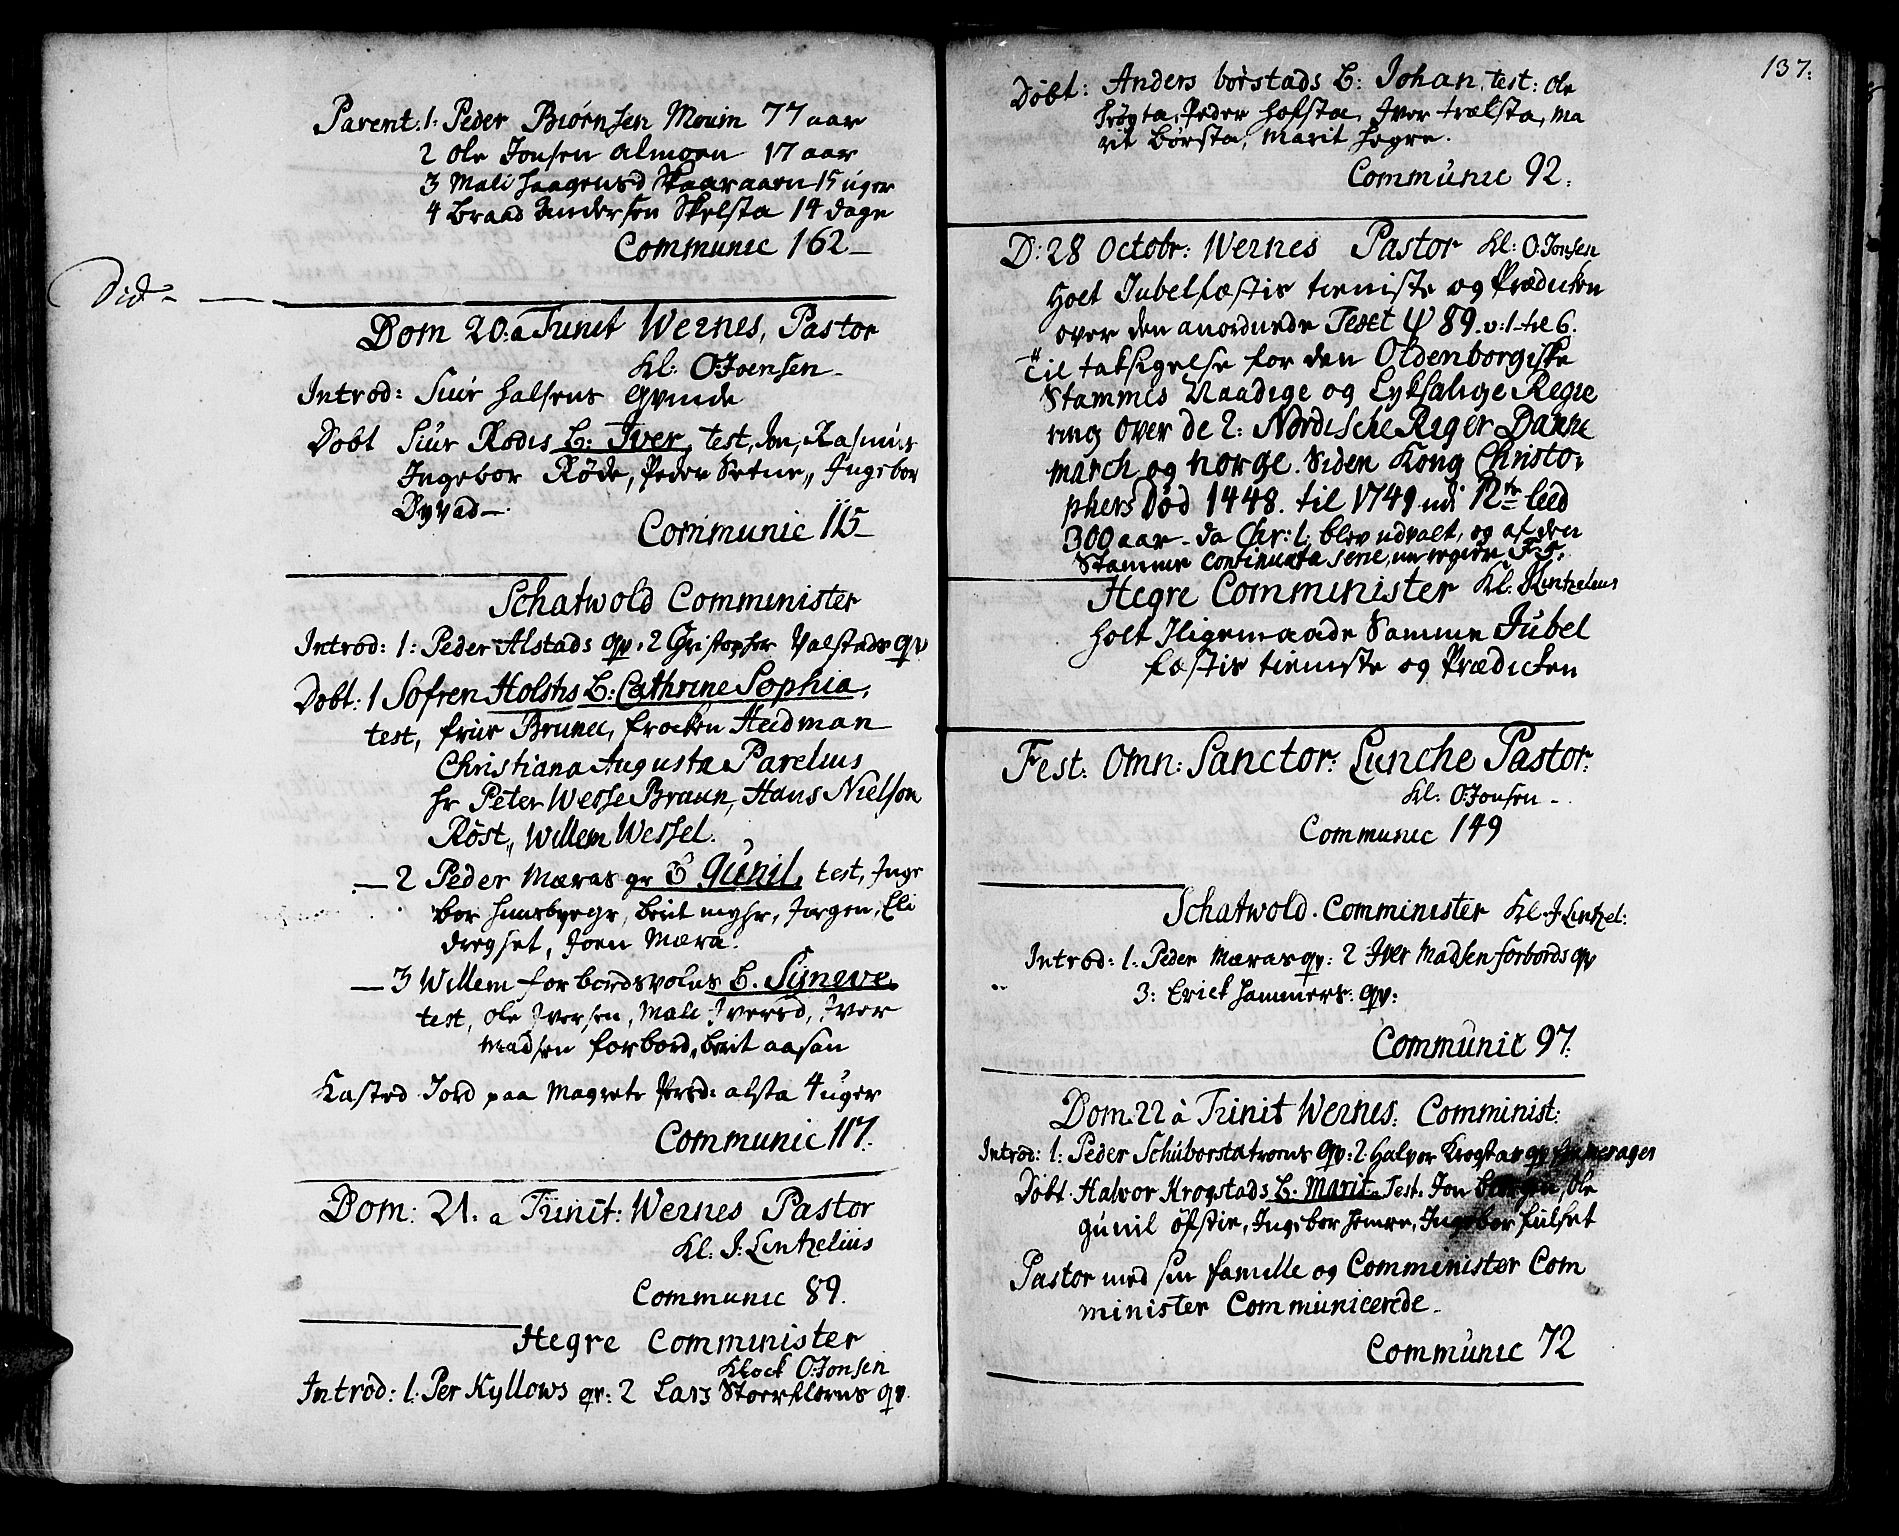 Parent. 1. Peder Biørnsen Moum 77 aar
2 Ole Jonsen almoen 17 aar
3 Mali Haagensd Skaaraaen 15 uger
4 Andersen Skelsta 14 dage
Communic 162
Did
Dom 20. a Trinit Wernes, Pastor
Kl: O:Joensen
Introd: Siur Halsens qvinde
Døbt Siur Rødis B: Iver, test, Jon, Rasmus
Ingebor Røde, Peder Setne, Ingebor
Communic 115
Schatwold Comminister
Introd: 1: Peder Alstads qv. 2 Christopher Valstads qv
Døbt: 1 Sofren Holsts B: Cathrine Sophia,
test, friir Brunec, frøcken Heidman
Christiana Augusta Parelius
Hr Peter Wesse Braun, Hans Nielsen
Röst, Willem Wessel.
2 Peder Mæras gr B Gunil, test, Inge
bor, Berit myhr, Jørgen, Eli
dregset, Joen Mæra.
3 Willem forbordsvolds B. Synewe
test, Ole Iversen, Mali Iversd, Iver
Madsen forbord, Berit aasan
Kasted Jord paa Magrete Persd: alsta 4 uger
Communic 117.
Dom: 21. a Trinit: Wernes Pastor
Kl: J. Lintzelius
Communic 89.
Hegre Comminister
Klock O:Jonsen
Introd: 1. Per Kyllows qv: 2 Lars qv
137.
Døbt: Anders börstads B: Johan, test: Ole
Peder Hofsta, Iver trælsta, Ma
rit Børsta, Marit Hegre.
Communic 92.
D: 28 Octobr: Wernes Pastor Kl: O:Jonsen
Holt Jubelfestis tieniste og Prædicken
over den anordnede Text Ψ 89. v: 1 til 6.
Til taksigelse for den Oldenborgiske
Stammes Naadige og Lyksalige Regie
ring over de 2: Nordische Riger Danne
march og Norge. Siden Kong Christo-
phers Død 1448. til 1749 udi 12te Leed
300 aar da Chr: 1. blev udvalt, og af den
Stamme continuata serie, nu regier F. 5.
Hegre Comminister Kl: Lintzelius
Holt Ligemaade Samme Jubel
festis tieniste og Prædicken
Fest. Omn: Sanctor: Lunche Pastor.
Kl. O:Jonsen
Communic 149
Schatwold. Comminister Kl. J. Lintzel:
Introd: 1. Peder Mæras qv: 2 Iver Madsen forbords qv
3: Erick Hammers: qv:
Communic 97.
Dom. 22 à Trinit Wernes. Comminist:
Introd: 1. Peder Schuborstatrøens qv: 2. Halvor Krogstas qv
Døbt Halvor Krogstads B. Marit. Test. Jon, Ole
Gunil öfstie, Ingebor Hemre, Ingebor fulset
Pastor med sin familie og Comminister Com
minister Communicerede
Communic 72